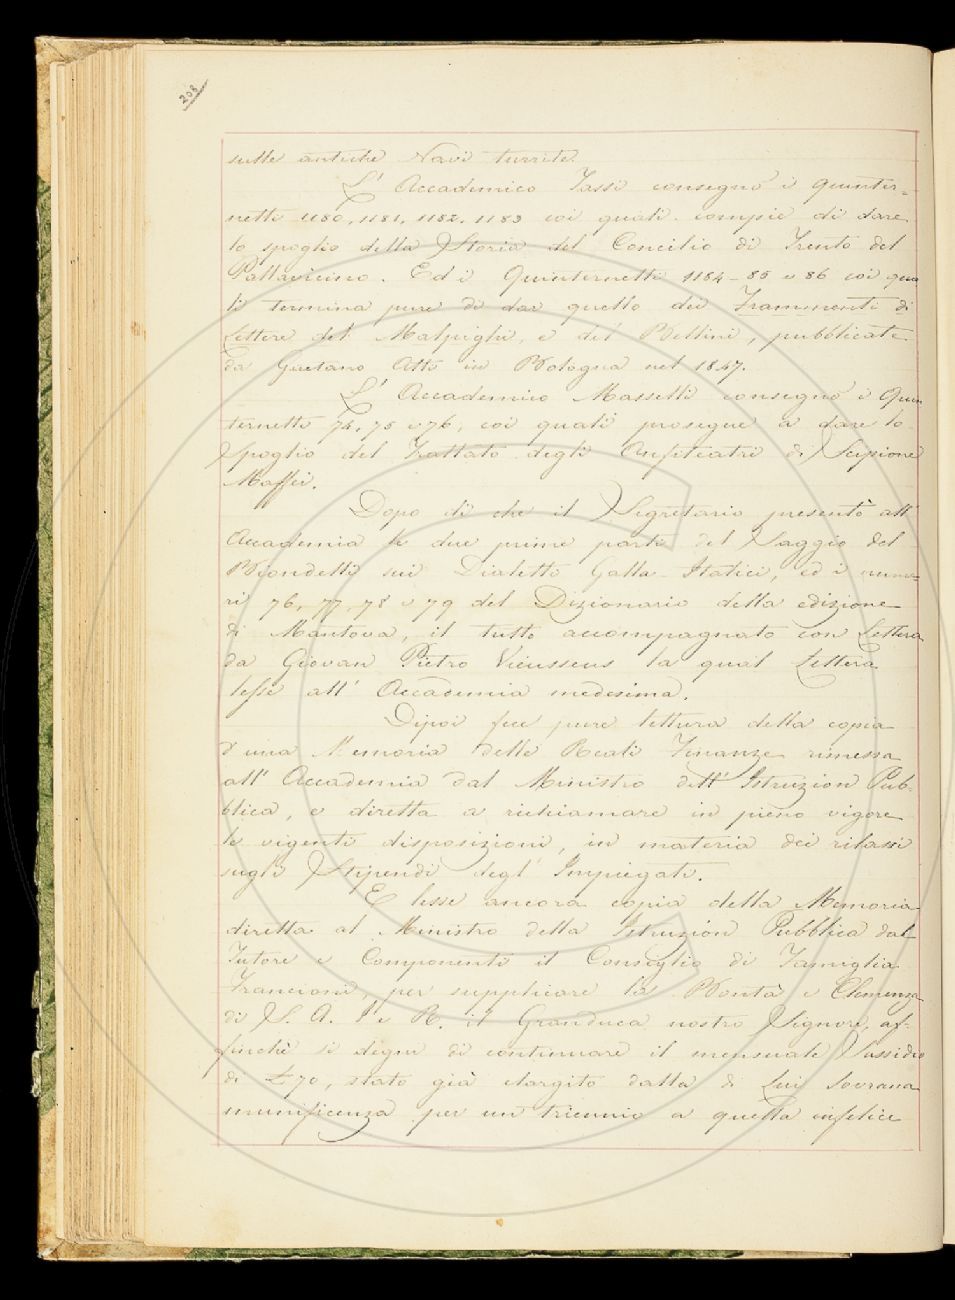 208
sulle antiche Navi turrite.
L' Accademico Tassi consegnò i Quinter-
netti 1180, 1181, 1182, 1183 coi quali compiè di dare
lo spoglio della Storia del Concilio di Trento del
Pallavicino. Ed i Quinternetti 1184-85 e 86 coi qua
li termina pure di dar quello dei Frammenti di
Lettere del Malpighi, e del Bellini, pubblicate
da Gaetano Atti in Bologna nel 1847.
L' Accademico Masselli consegnò i Quin
ternetti 74, 75 e 76, coi quali prosegue a dare lo
Spoglio del Trattato degli Anfiteatri di Scipione
Maffei.
Dopo di che il Segretario presentò all'
Accademia le due prime parti del Saggio del
Biondelli sui Dialetti Gallo-Italici, ed i nume-
ri 76, 77, 78 e 79 del Dizionario della edizione
di Mantova, il tutto accompagnato con Lettera
da Giovan Pietro Vieusseus la qual Lettera
lesse all' Accademia medesima.
Dipoi fece pure lettura della copia
d'una Memoria delle Reali Finanze rimessa
all' Accademia dal Ministro dell' Istruzion Pub-
blica, e diretta a richiamare in pieno vigore
le vigenti disposizioni, in materia dei rilassi
sugli Stipendi degl' Impiegati.
E lesse ancora copia della Memoria
diretta al Ministro della Istruzion Pubblica dal
Tutore e Componenti il Consiglio di Famiglia
Francioni, per supplicare la Bontà e Clemenza
di S. A. I. e R. il Granduca nostro Signore, af-
finchè si degni di continuare il mensuale Sussidio
di £ 70, stato già elargito dalla di Lui Sovrana
munificenza per un triennio a quella infelice